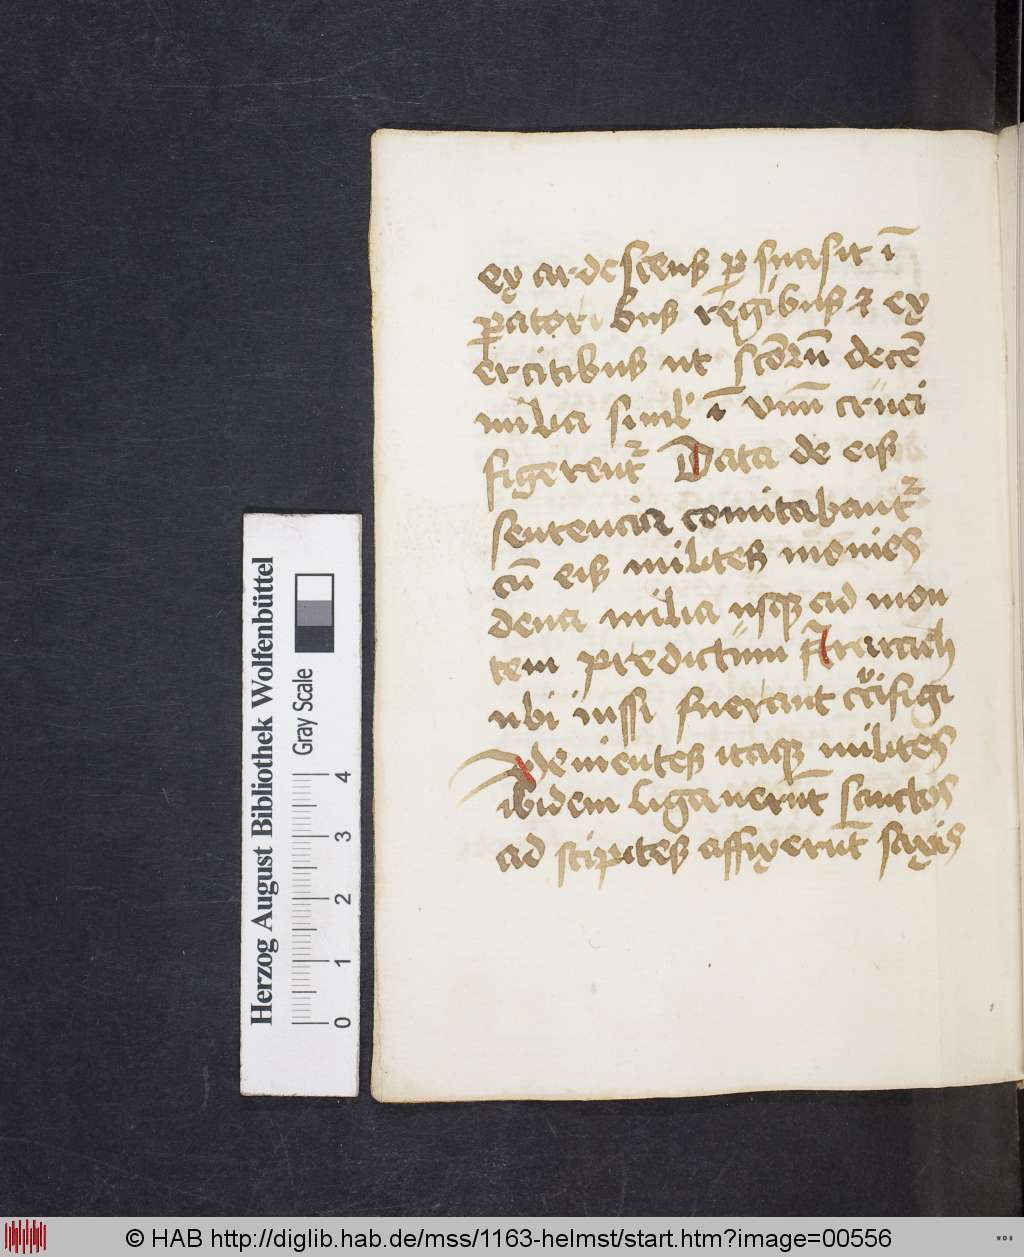 ex ardescens p̱ suasit ī
p̱atoribus regibus ⁊ ex
ercitibus ut scōrū decē
milia simłˀ ī vnū crüci
figerentˀ Data de eis
sentencia comitabantˀ
cū eis milites
dena milia usqꝫ ad mon
tem predictum Ararath
ubi iussi fuerant crͥcifigi
Adenientes itaqꝫ milites
ibidem ligauerūt sanctos
ad stipites affixerūt saxis
Herzog August Bibliothek Wolfenbüttel
Gray Scale
0 1 2 3 4
© HAB http://diglib.hab.de/mss/1163-helmst/start.htm?image=00556